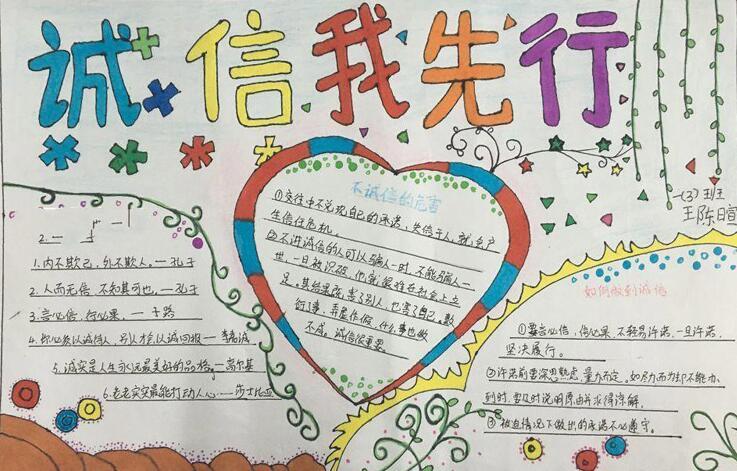 诚信我先行
一(3)班
王陈日宣
1.内不欺己,外不欺人。—孔子
2.人而无信,不知其可也。—孔子
3.言必信,行必果。—子路
4.你必须以诚待人,别人才会以诚回报—李嘉诚
5.诚实是人生永远最美好的品格。—高尔基
6.老老实实最能打动人心。—莎士比亚
不诚信的危害
①交往中不兑现自己的承诺,失信于人,就会产
生信任危机。
②不讲诚信的人可以骗人一时,不能骗人一
世,一旦被识破,他就很难在社会上立
足。其结果既害了别人,也害了自己。
弄虚作假,什么事也做
不成。诚信很重要。
如何做到诚信
①要言必信,行必果,不轻易许诺,一旦许诺,
坚决履行。
②许诺前要深思熟虑,量力而定。如尽力而为却不能办
到时,要及时说明原由并求得谅解。
③被迫情况下做出的承诺不必遵守。